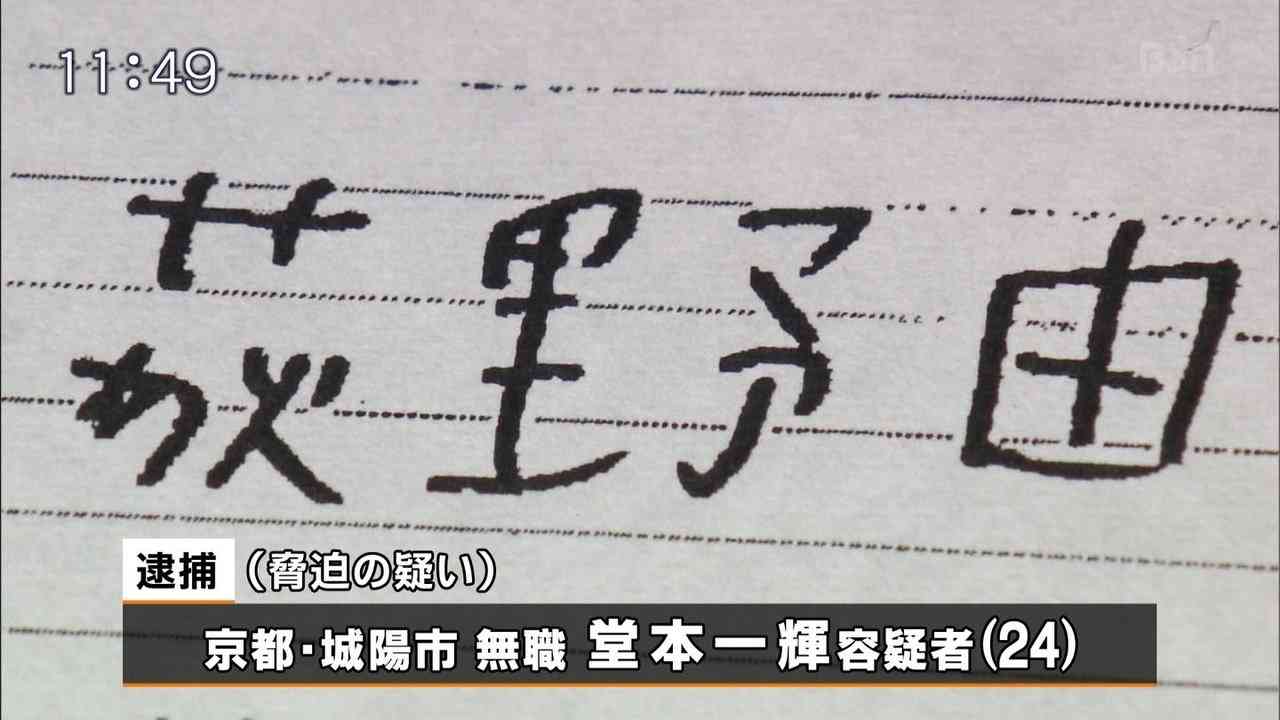 11:49
BSN
荻野由
逮捕 (脅迫の疑い)
京都・城陽市 無職 堂本一輝容疑者(24)